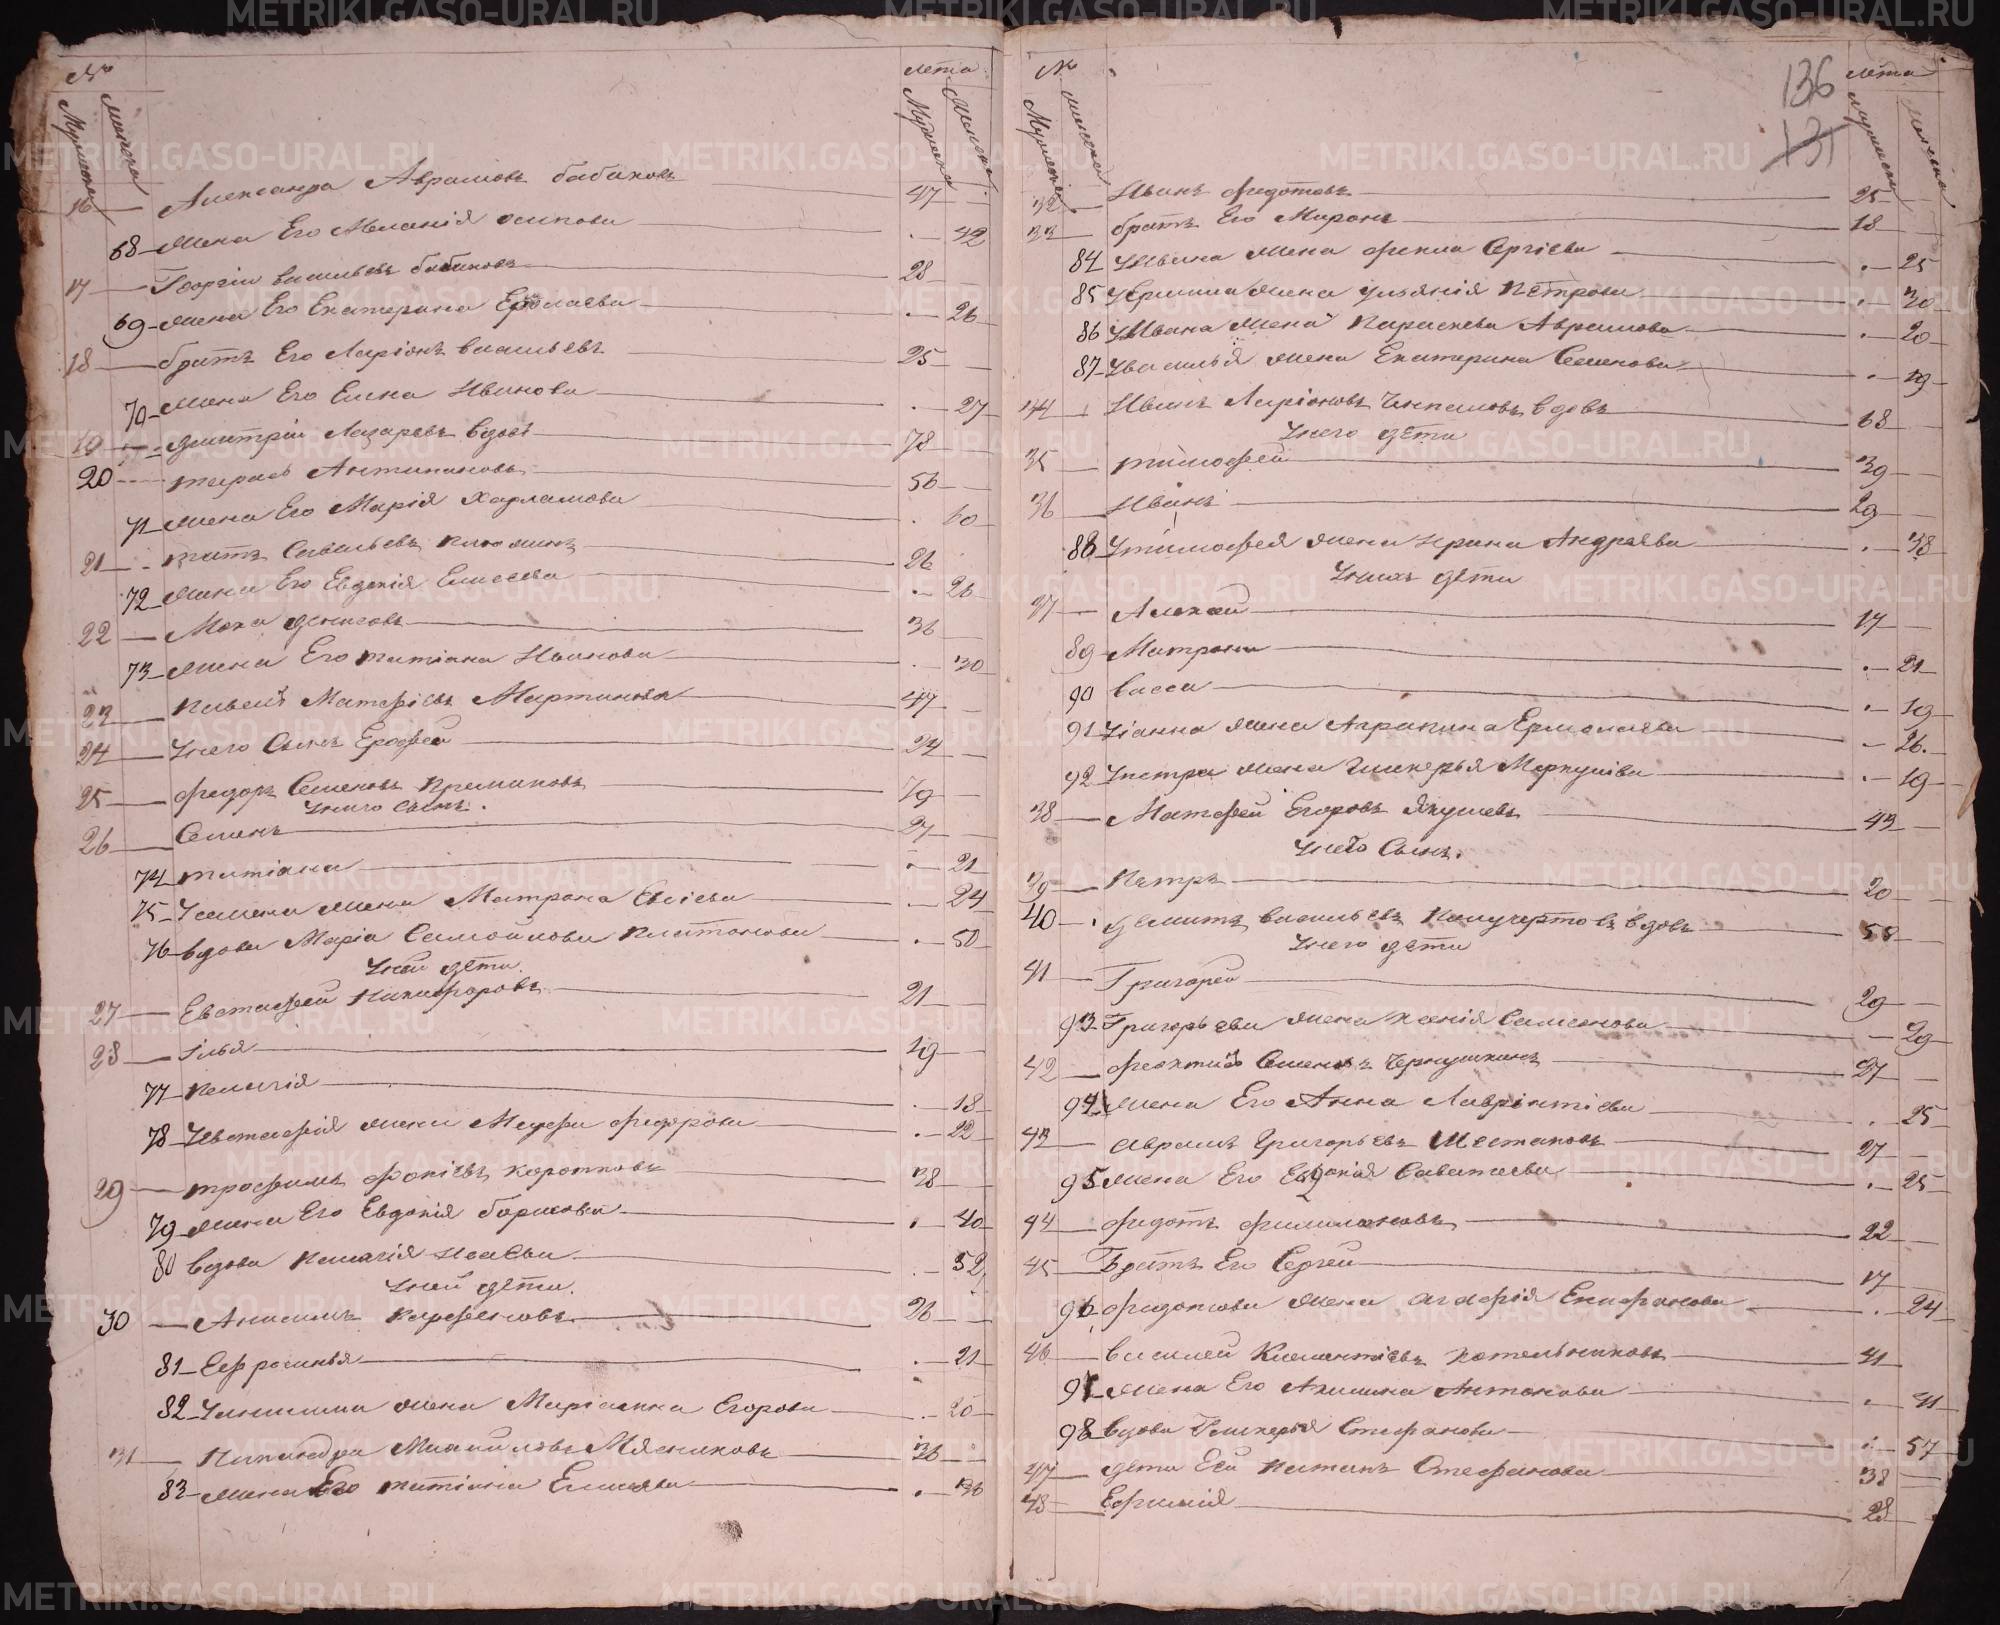 №
лета
Мужеска
женска
Мужеска
Женска
16 Александра Аврамовъ бабиковъ 47
68 жена Его Меланія осипова 42
17 Георгіи васильевъ бабиковъ 28
69 жена Его Екатерина Ермолаева 26
18 братъ Его Ларіонъ васильевъ 25
70 жена Его Елена Иванова 27
19 дмитріи Лазаревъ вдовъ 78
20 тарасъ Антипановъ 56
71 жена Его Марія Харламова 60
21 титъ Савельевъ 26
72 жена Его Евдокія Елисеева 26
22 Мока денисовъ 36
73 жена Его татіана Иванова 30
23 Павелъ Матфіевъ Мартиновъ 47
24 Унего Сынъ Ерофей 24
25 федоръ Семеновъ 79
Унего сынъ.
26 Семенъ 27
74 татіана 21
75 Усемена жена Матрона 24
76 вдова Маріа Самойлова Платонова 50
Уней дети.
27 Евстафей Никифоровъ 21
28 Илья 19
77 Пелагія 18
78 Уевстафія жена федорова 22
29 трофимъ фокіевъ коротковъ 38
79 жена Его Евдокія борисова 40
80 вдова Пелагія Исаева 52
Уней дети.
30 Анисимъ Парфеновъ 26
81 Ефросинья 21
82 Уанисима жена Маріамна Егорова 20
31 Никандра Михайловъ Мясниковъ 36
83 жена Его татіана Елисеева 36
№
136
131
лета
Мужеска
женска
Мужеска
Женска
32 Иванъ федотовъ 25
33 братъ Его Миронъ 18
84 Уивана жена фекла Сергіева 25
85 жена Ульянія Петрова 30
86 Уивана жена Параскева Аврамова 20
87 Увасилья жена Екатерина Семенова 19
34 Иванъ Ларіоновъ вдовъ 68
Унего дети
35 тимофей 39
36 Иванъ 29
88 Утимофея жена Ирина Андреева 38
Унихъ дети
37 Алексей 17
89 Матрона 21
90 васса 19
91 Уіанна жена Агрипина Ермолаева 26.
92 Упетра жена Гликерья Меркуріева 19
38 Матфей Егоровъ Якушевъ 43
Унего Сынъ.
39 Петръ 20
40 васильевъ Получертовъ вдовъ 58
Унего дети
41 Григорей 29
93 Григорьева жена Ксенія Самсонова 29
42 феоктистъ Семеновъ Чернушкинъ 27
94 жена Его Анна Лаврентіева 25
43 Аврамъ Григорьевъ Шестаковъ 27
95 жена Его Евдокія Саватеева 25
44 федотъ филимоновъ 22
45 Братъ Его Сергей 17
96 федотова жена Агафія Епифанова 24
46 василей Клементіевъ котельниковъ 41
97 жена Его Акилина Антонова 41
98 вдова Гликерья Стефанова 57
47 дети Ея Натанъ Стефанова 38
48 Ефимія 28